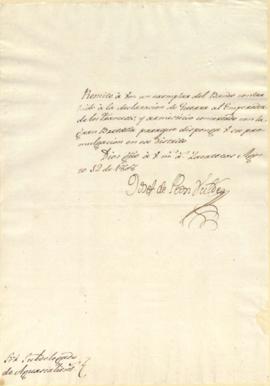 Remito à Vm un exemplar del Bando contra
hido à la declaracion de Guerra al Emperador
de los Franceses, y armisticio concertado con la
Gran Bretaña para que disponga su pro
mulgacion en ese Distrito
Dios gũe à V m.s a.s Zacatecas Agos
to 12 de 1808
de Peon Valdes
Sor Subdelegado
de Aguascalientes